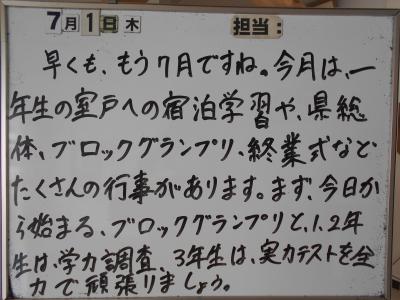 7月1日木 担当:
早くも、もう7月ですね。今月は、一
年生の室戸への宿泊学習や、県総
体、ブロックグランプリ、終業式など
たくさんの行事があります。まず、今日か
ら始まる、ブロックグランプリと、1、2年
生は、学力調査、3年生は、実力テストを全
力で頑張りましょう。